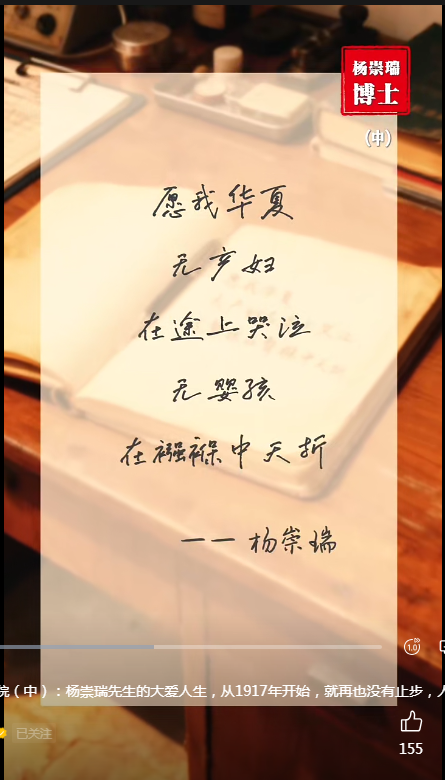 杨崇瑞
博士
（中）
愿我华夏
无产妇
在途上哭泣
无婴孩
在襁褓中夭折
—— 杨崇瑞
1.0
院（中）：杨崇瑞先生的大爱人生，从1917年开始，就再也没有止步，人
已关注
155